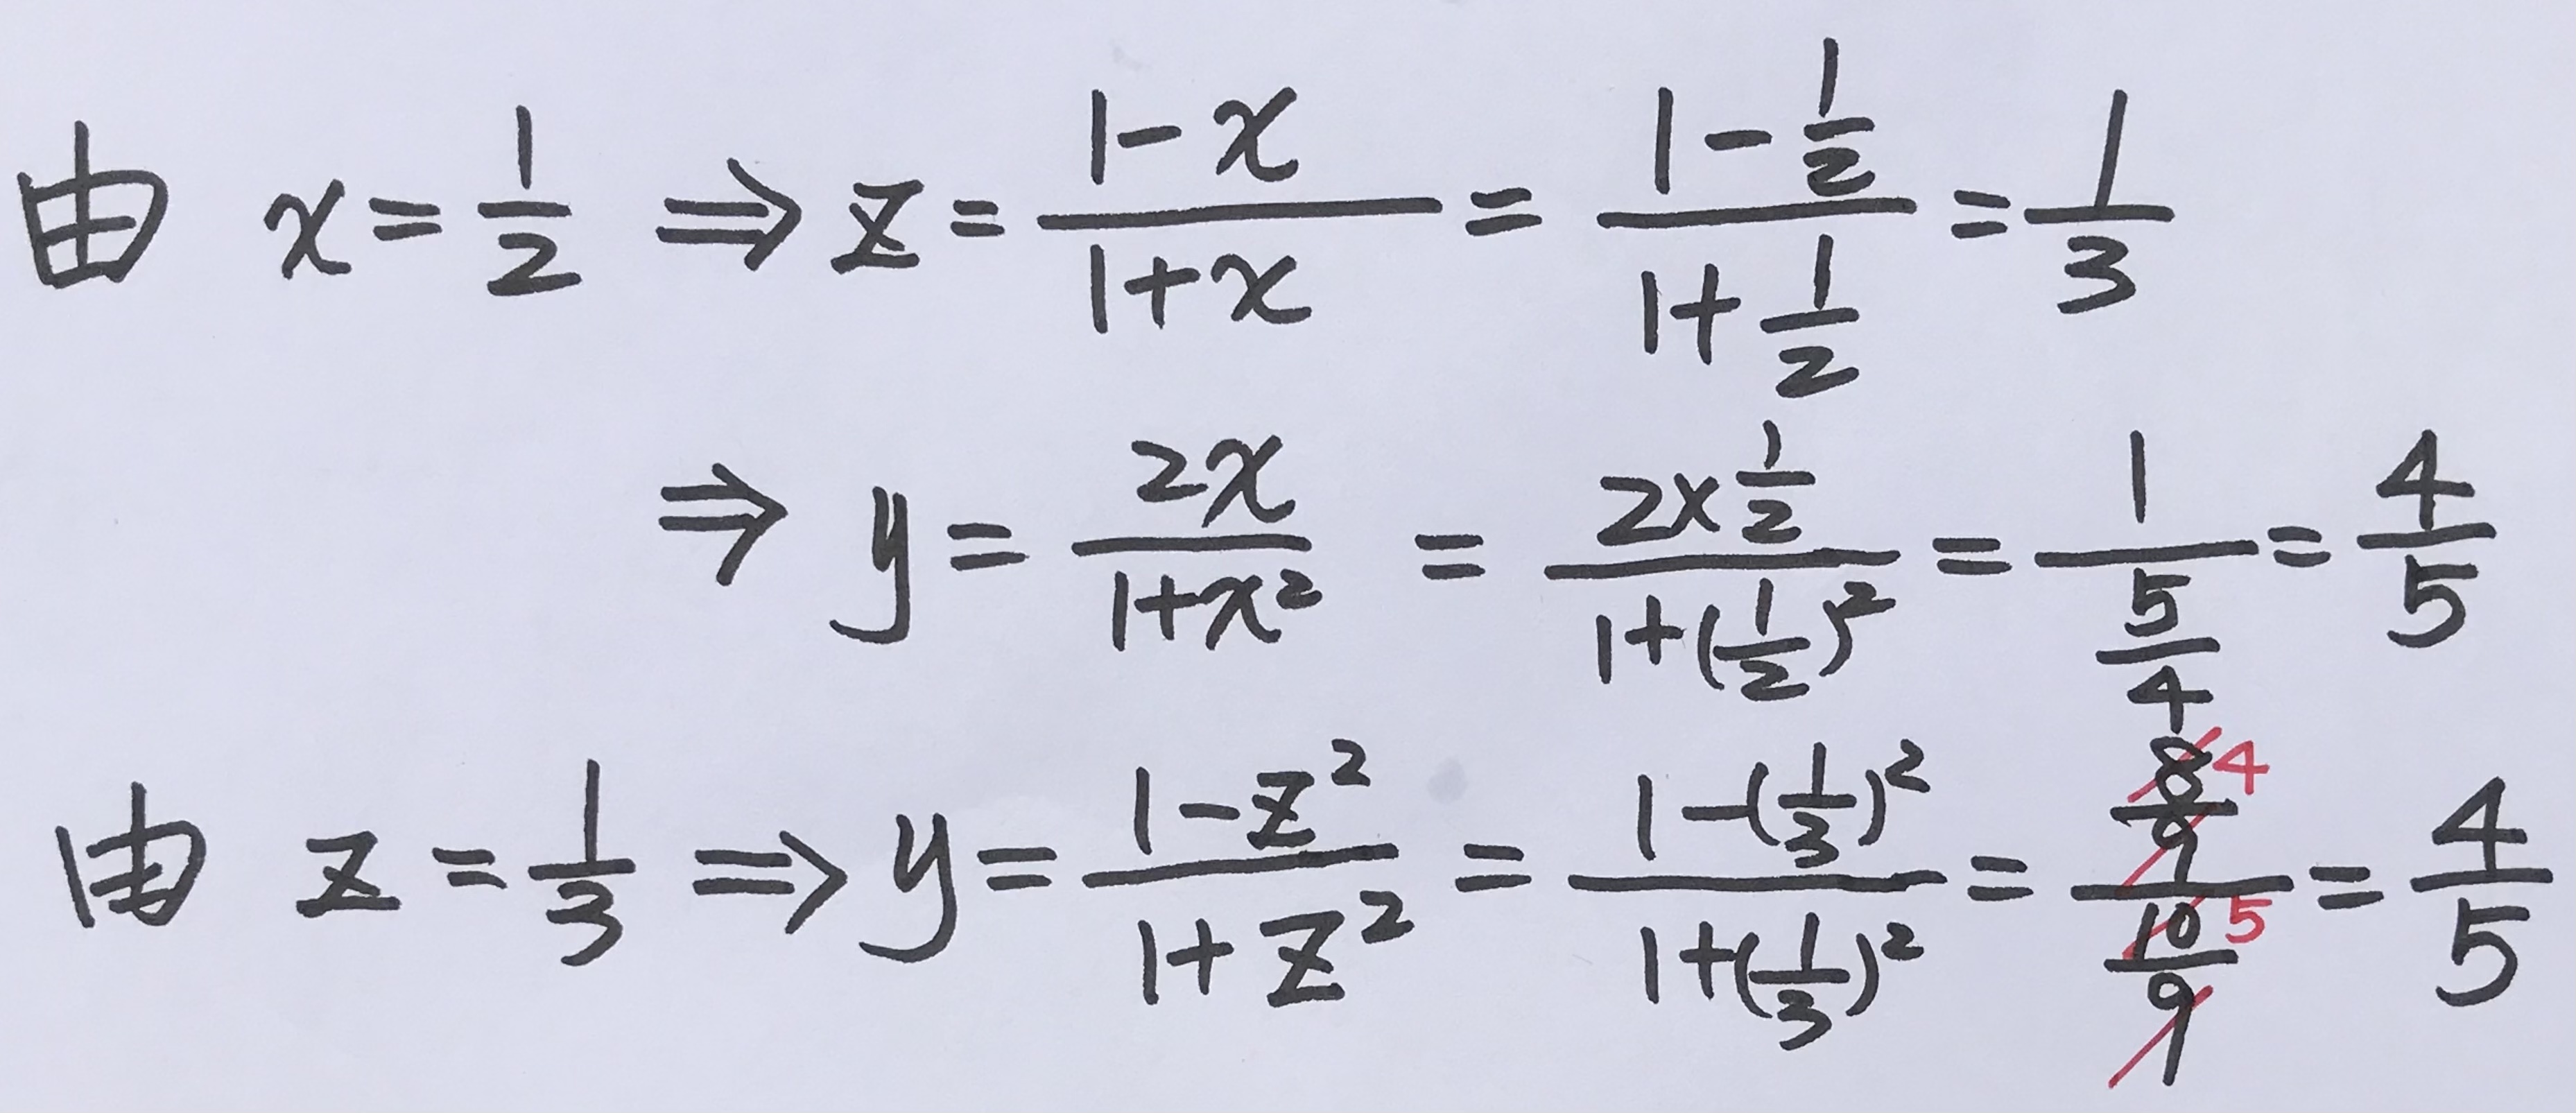 由 x = \frac{1}{2} ⇒ z = \frac{1-x}{1+x} = \frac{1-\frac{1}{2}}{1+\frac{1}{2}} = \frac{1}{3}
⇒ y = \frac{2x}{1+x^2} = \frac{2×\frac{1}{2}}{1+(\frac{1}{2})^2} = \frac{1}{\frac{5}{4}} = \frac{4}{5}
由 z = \frac{1}{3} ⇒ y = \frac{1-z^2}{1+z^2} = \frac{1-(\frac{1}{3})^2}{1+(\frac{1}{3})^2} = \frac{\frac{8}{9}}{\frac{10}{9}} 4 5 = \frac{4}{5}